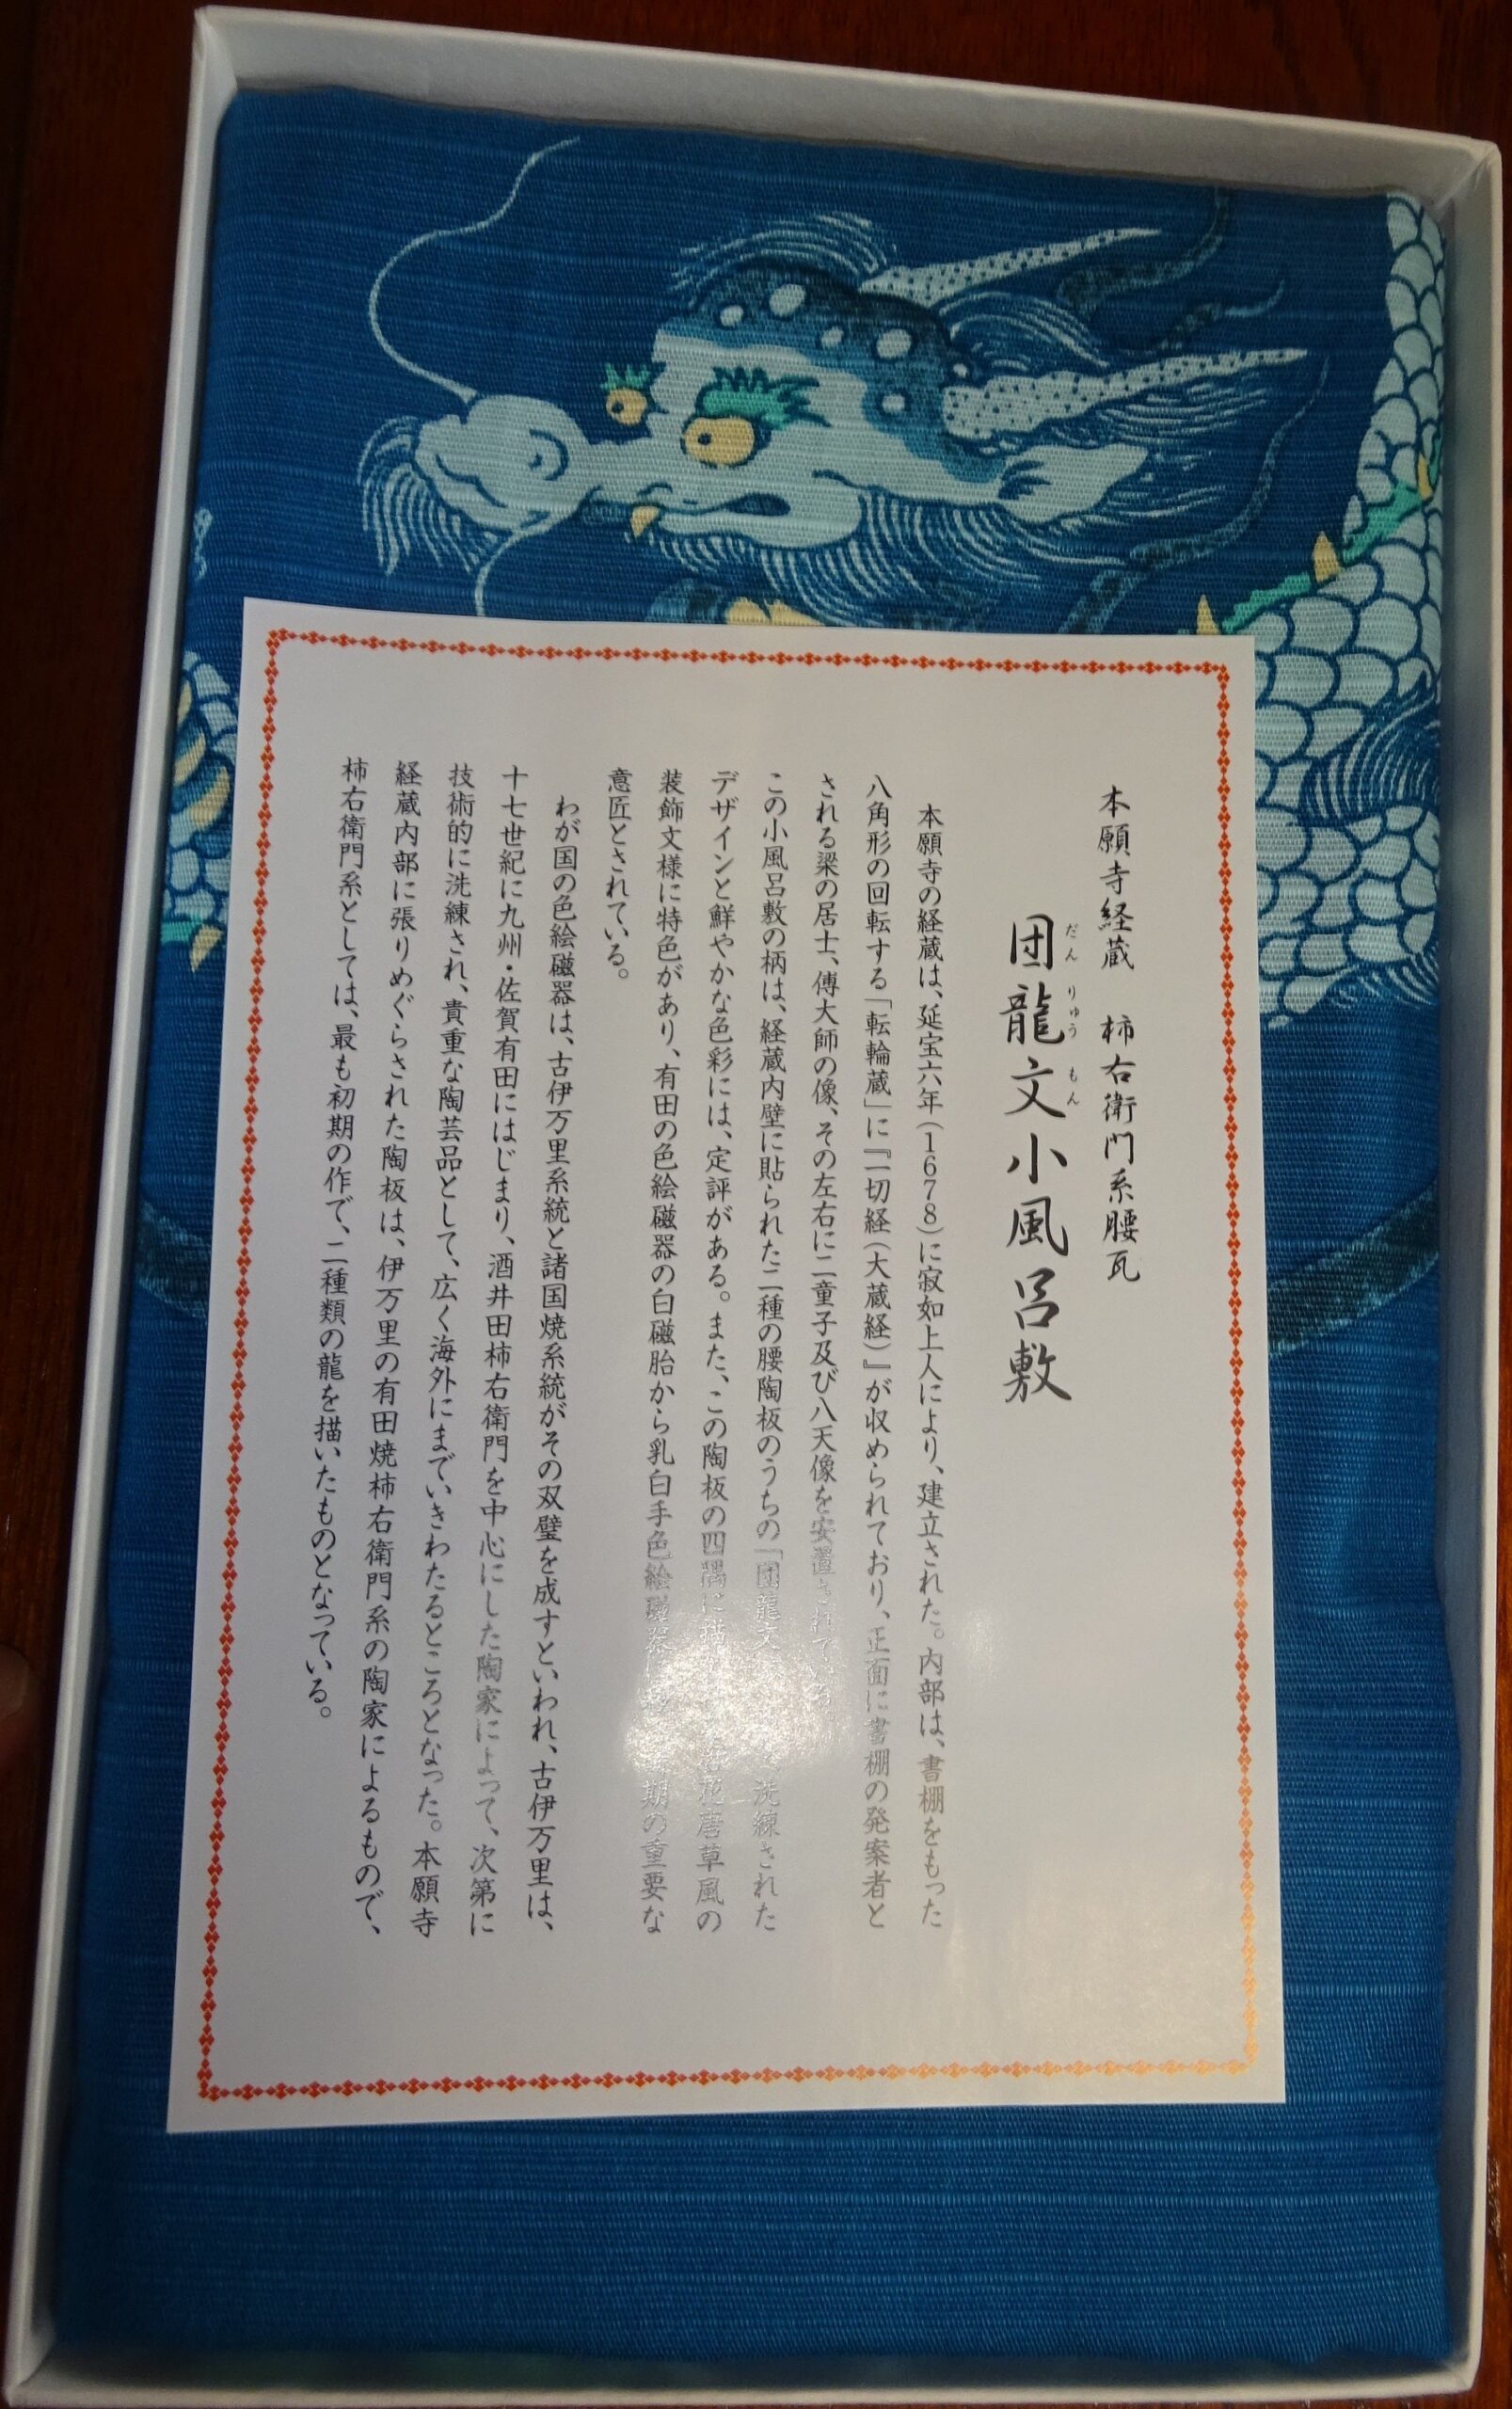 本願寺経蔵 柿右衛門系腰瓦
だんりゅうもん
団龍文小風呂敷
本願寺の経蔵は、延宝六年(1678)に寂如上人により、建立された。内部は、書棚をもった
八角形の回転する「転輪蔵」に『一切経(大蔵経)』が収められており、正面に書棚の発案者と
される梁の居士、傅大師の像、その左右に二童子及び八天像を安置されて
この小風呂敷の柄は、経蔵内壁に貼られた二種の腰陶板のうちの「団龍文 洗練された
デザインと鮮やかな色彩には、定評がある。また、この陶板の四隅に 花唐草風の
装飾文様に特色があり、有田の色絵磁器の白磁胎から乳白手色絵磁器 期の重要な
意匠とされている。
わが国の色絵磁器は、古伊万里系統と諸国焼系統がその双璧を成すといわれ、古伊万里は、
十七世紀に九州・佐賀有田にはじまり、酒井田柿右衛門を中心にした陶家によって、次第に
技術的に洗練され、貴重な陶芸品として、広く海外にまでいきわたるところとなった。本願寺
経蔵内部に張りめぐらされた陶板は、伊万里の有田焼柿右衛門系の陶家によるもので、
柿右衛門系としては、最も初期の作で、二種類の龍を描いたものとなっている。